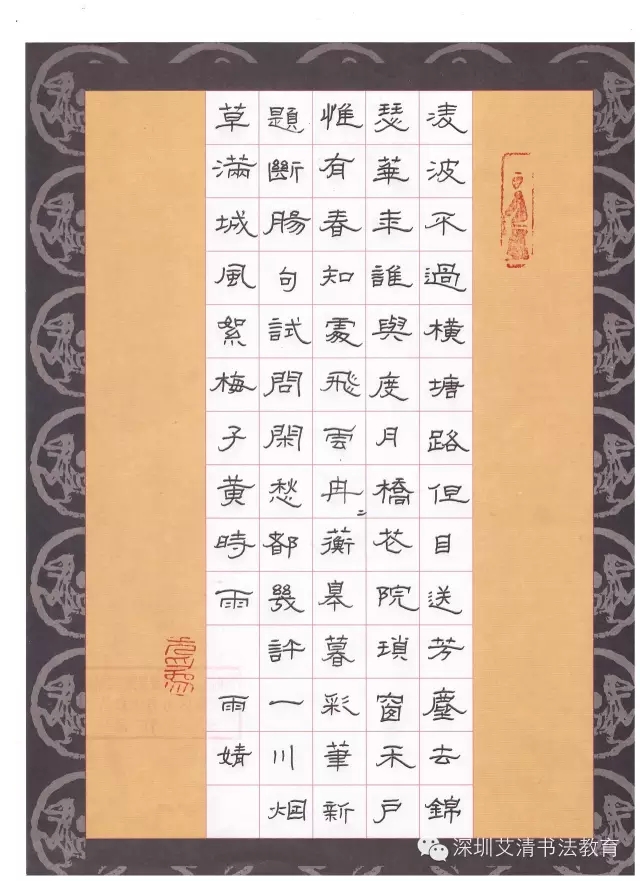 淩波不過橫塘路但目送芳塵去錦
瑟華年誰與度月橋花院瑣窗朱戶
惟有春知處飛雲冉〻蘅皋暮彩筆新
題斷腸句試問閑愁都幾許一川烟
草滿城風絮梅子黃時雨 雨婧
深圳艾清书法教育